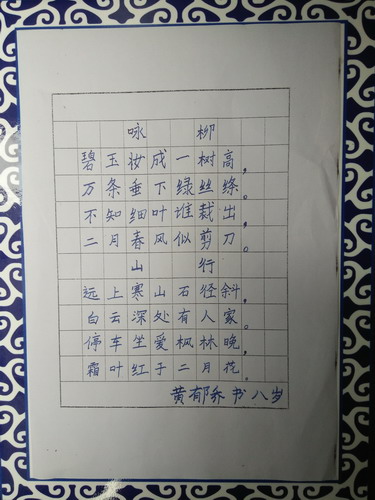 咏柳
碧玉妆成一树高，
万条垂下绿丝绦。
不知细叶谁裁出，
二月春风似剪刀。
山行
远上寒山石径斜，
白云深处有人家。
停车坐爱枫林晚，
霜叶红于二月花。
黄郁乔书八岁